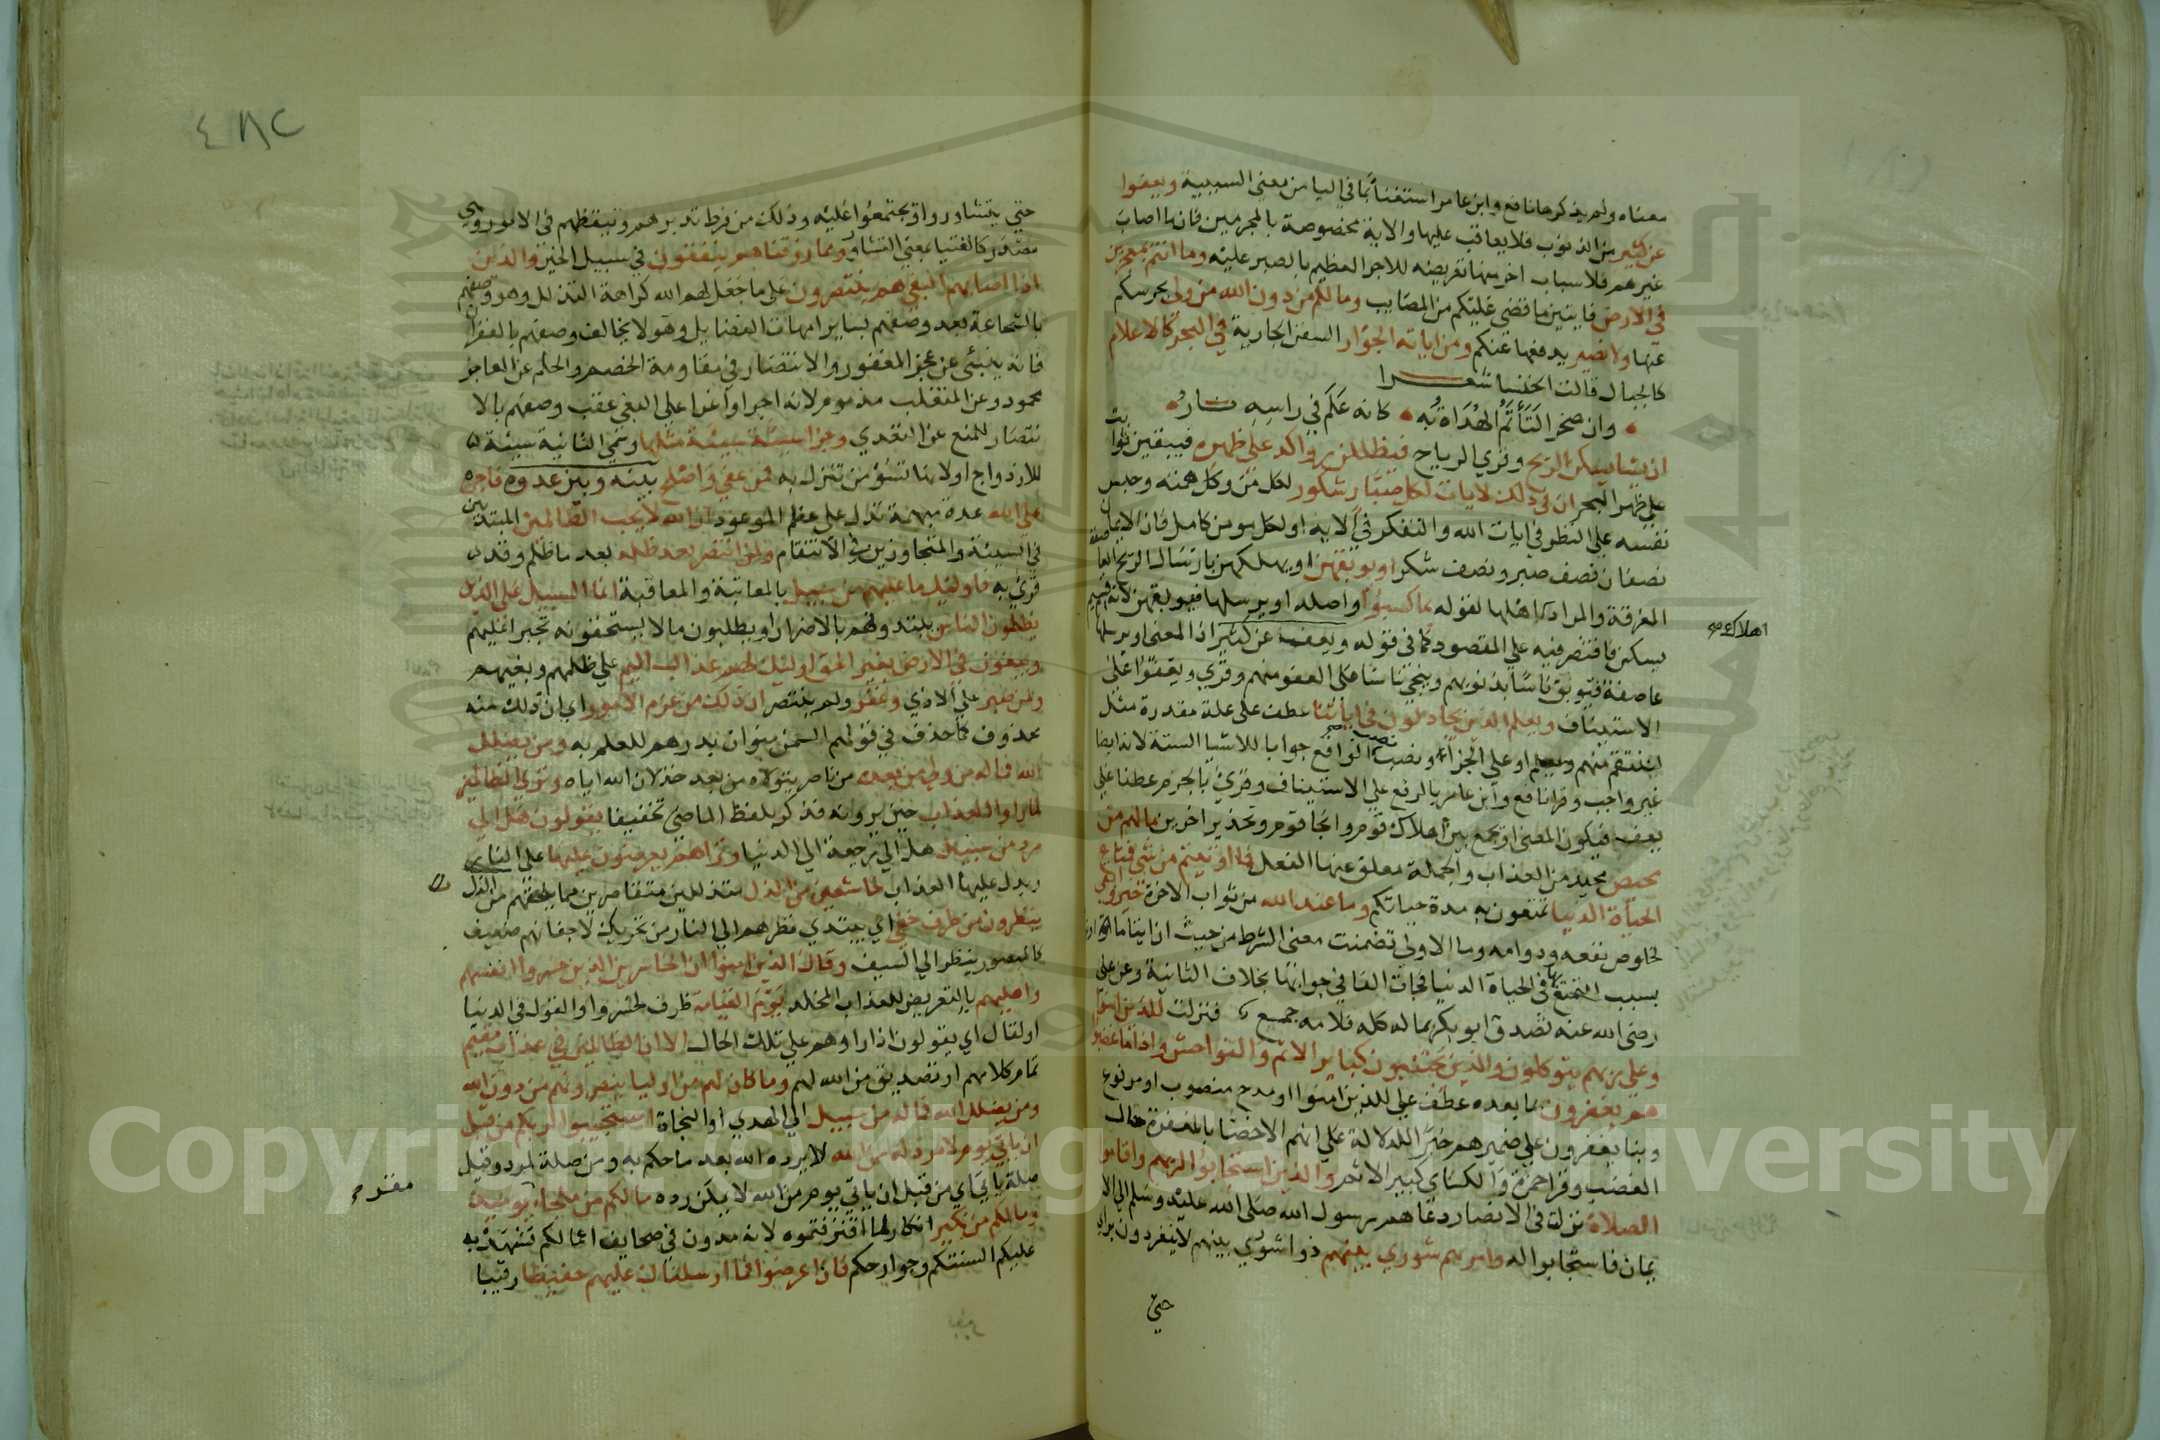 معناه ولم يذكرها نافع وابن عامر استغناء بما في اليا من معنى السببية ويعفوا
عن كثير من الذنوب فلا يعاقب عليها والاية مخصوصة بالمجرمين فان ما اصاب
غيرهم فلاسباب اخر منها تعريضه للاجر العظيم بالصبر عليه وما انتم بمعجزين
في الارض فايتين ما قضى عليكم من المصايب وما لكم من دون الله من ولي يحرسكم
عنها ولا نصير يدفعها عنكم ومن اياته الجوار السفن الجارية في البحر كالاعلام
كالجبال قالت الخنسا شعرا
وان صخرا لتأتم الهداة به كانه علم في راسه نار
ان يشا يسكن الريح وقري الرياح فيظللن رواكد على ظهره فيبقين ثوابت
على ظهر البحر ان في ذلك لايات لكل صبار شكور لكل من وكل همته وحبس
نفسه على النظر في ايات الله والتفكر في الايه او لكل مومن كامل فان الايمان
نصفان نصف صبر ونصف شكر او يوبقهن او يهلكهن بارسال الريح العاصفة
المغرقة والمراد اهلها لقوله بما كسبوا واصله او يرسلها فيوبقهن لانه قسيم
يسكن فاقتصر فيه على المقصود كما في قوله ويعف عن كثير اذ المعنى او يرسلها
عاصفة فيوبق ناسا بذنوبهم وينجي ناسا على العفو منهم وقري ويعفوا على
الاستيناف ويعلم الذين يجادلون في اياتنا عطف على علة مقدرة مثل
لينتقم منهم ويعلم او على الجزاء ونصب نصب الواقع جوابا للاشيا الستة لانه ايضا
غير واجب وقرا نافع وابن عامر بالرفع على الاستيناف وقري بالجزم عطفا على
يعف فيكون المعنى او يجمع بين اهلاك قوم وانجا قوم وتحذير اخرين ما لهم من
محيص محيد من العذاب والجملة معلق عنها الفعل فما اوتيتم من شي فمتاع
الحياة الدنيا تمتعون به مدة حياتكم وما عند الله من ثواب الاخرة خير وابقى
لخلوص نفعه ودوامه وما الاولى تضمنت معنى الشرط من حيث ان ايتا ما اوتوا
بسبب التمتع بها في الحياة الدنيا فجات الفا في جوابها بخلاف الثانية وعن علي
رضي الله عنه تصدق ابو بكر بماله كله فلامه جمع فنزلت للذين امنوا
وعلى ربهم يتوكلون والذين يجتنبون كباير الاثم والفواحش واذا ما غضبوا
هم يغفرون بما بعده عطف على للذين امنوا او مدح منصوب او مرفوع
وبنا يغفرون على ضميرهم خبرا للدلالة على انهم الاخصا بالمغفرة حال
الغضب وقرا حمزة والكساي كبير الاثم والذين استجابوا لربهم واقاموا
الصلاة نزلت في الانصار دعاهم رسول الله صلى الله عليه وسلم الى الا
يمان فاستجابوا له وامرهم شوري بينهم ذوا شوري بينهم لا ينفردون براي
حتى
اهلاك صح
٤٨٢
حتى يتشاوروا ويجتمعوا عليه وذلك من فرط تدبرهم وتيقظهم في الامور وهي
مصدر كالفتيا بمعنى التشاور ومما رزقناهم ينفقون في سبيل الخير والذين
اذا اصابهم البغي هم ينتصرون على ما جعل لهم الله كراهة التذلل وهو وصفهم
بالشجاعة بعد وصفهم بساير امهات الفضايل وهو لا يخالف وصفهم بالغفران
فانه ينبئ عن عجز المغفور والانتصار في مقاومة الخصم والحلم عن العاجز
محمود وعن المتغلب مذموم لانه اجرا واغرا على البغي عقب وصفهم بالا
نتصار للمنع عن التعدي وجزا سيئة سيئة مثلها وسمى الثانية سيئة
للازدواج او لانها تسوء من تنزل به فمن عفى واصلح بينه وبين عدوه فاجره
على الله عدة مبهمة تدل على عظم الموعود انه لا يحب الظالمين المبتدين
في السيئة والمتجاوزين في الانتقام ولمن انتصر بعد ظلمه بعد ما ظلم وقد
قري به فاولئك ما عليهم من سبيل بالمعاتبة والمعاقبة انما السبيل على الذين
يظلمون الناس يبتدونهم بالاضرار او يطلبون ما لا يستحقونه تجبرا عليهم
ويبغون في الارض بغير الحق اوليك لهم عذاب اليم على ظلمهم وبغيهم
ولمن صبر على الاذي وغفر ولم ينتصر ان ذلك من عزم الامور اي ان ذلك منه
محذوف كما حذف في قولهم السمن منوان بدرهم للعلم به ومن يضلل
الله فما له من ولي من بعده من ناصر يتولاه من بعد خذلان الله اياه وترى الظالمين
لما راوا العذاب حين يرونه فذكر بلفظ الماضي تحقيقا يقولون هل الى
مرد من سبيل هل الى رجعة الى الدنيا وتراهم يعرضون عليها على النار
ويدل عليها العذاب خاشعين من الذل متذللين متقاصرين مما يلحقهم من الذل
ينظرون من طرف خفي اي يبتدي نظرهم الى النار من تحريك لاجفانهم ضعيف
كالمصبور ينظر الى السيف وقال الذين امنوا ان الخاسرين الذين خسروا انفسهم
واهليهم بالتعريض للعذاب المخلد يوم القيامة ظرف لخسروا والقول في الدنيا
او لقال اي يقولون اذا راوهم على تلك الحال الا ان الظالمين في عذاب مقيم
تمام كلامهم او تصديق من الله لهم وما كان لهم من اوليا ينصرونهم من دون الله
ومن يضلل الله فما له من سبيل الى الهدي او النجاة استجيبوا لربكم من قبل
ان ياتي يوم لا مرد له من الله لا يرده الله بعد ما حكم به ومن صلة لمرد وقيل
صلة ياتي اي من قبل ان ياتي يوم من الله لا يمكن رده ما لكم من ملجاء يوميذ
وما لكم من نكير انكار لما اقترفتموه لانه مدون في صحايف اعمالكم تشهد به
عليكم السنتكم وجوارحكم فان اعرضوا فما ارسلناك عليهم حفيظا رقيبا
مفر صح